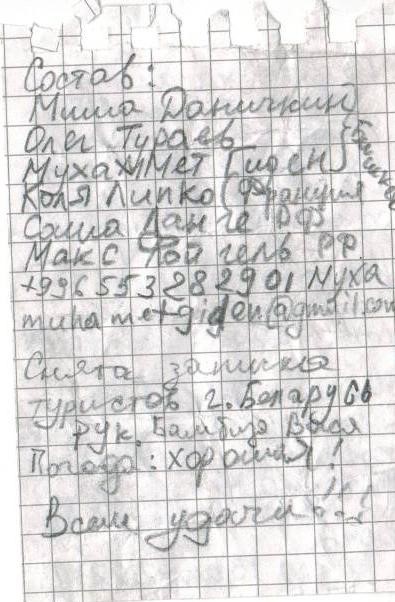 Состав:
Миша Даничкин
Олег Тураев
Мухаммет Гиден
Коля Липко (Франция
Саша Ланге РФ
Макс Фойгель РФ
+996553282901 Муха
muhametgiden@gmail.com
Снята записка
туристов г. Беларусь
рук. Бамбиза Вася
Погода: хорошая!
Всем удачи!!!